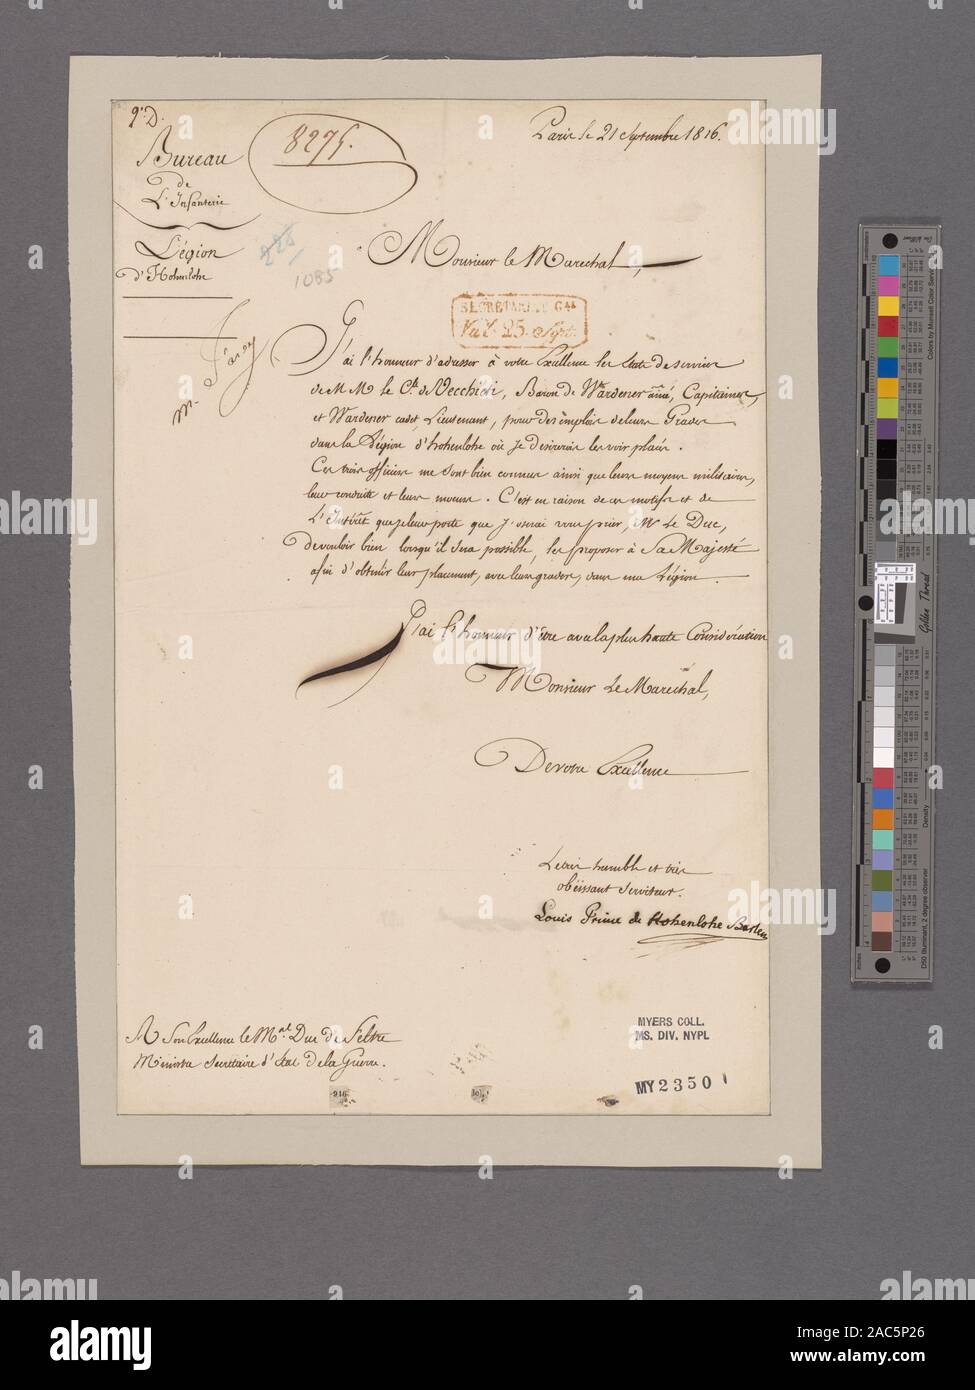 2e. D.
8275.
Paris le 21 Septembre 1816.
Bureau
de
L'Infanterie
Légion
d'Hohenlohe
225
1085
Monsieur le Marechal,
SECRETARIAT Gal
25. Sept.
M.
J'ai l'honneur d'adresser à votre Excellence les états de services
de M M le Cte de Vecchidi, Baron de Wardener ainé, Capitaines,
et Wardener cadet, Lieutenant, pour des emplois de leurs Grades
dans la Légion d'hohenlohe où je désirerais les voir placés.
Ces trois officiers me sont bien connus ainsi que leurs moyens militaires,
leur conduite et leurs moeurs. C'est en raison de ces motifs et de
L'Intérêt que je leur porte que j'oserai vous prier, Mr Le Duc,
de vouloir bien lorsqu'il sera possible, les proposer à Sa Majesté
afin d'obtenir leur placement, avec leurs grades, dans ma Légion.
J'ai l'honneur d'être avec la plus haute Considération
Monsieur Le Marechal,
De votre Excellence
Le très humble et très
obéissant Serviteur.
Louis Prince de Hohenlohe Barten
A Son Excellence le Mal. Duc de Feltre
Ministre Secretaire d'état de la Guerre.
MYERS COLL.
MS. DIV. NYPL
MY2350
Golden Thread
Colors by Munsell Color Services
Density
D50 Illuminant, 2 degree observer
inches
alamy
2AC5P26
www.alamy.com